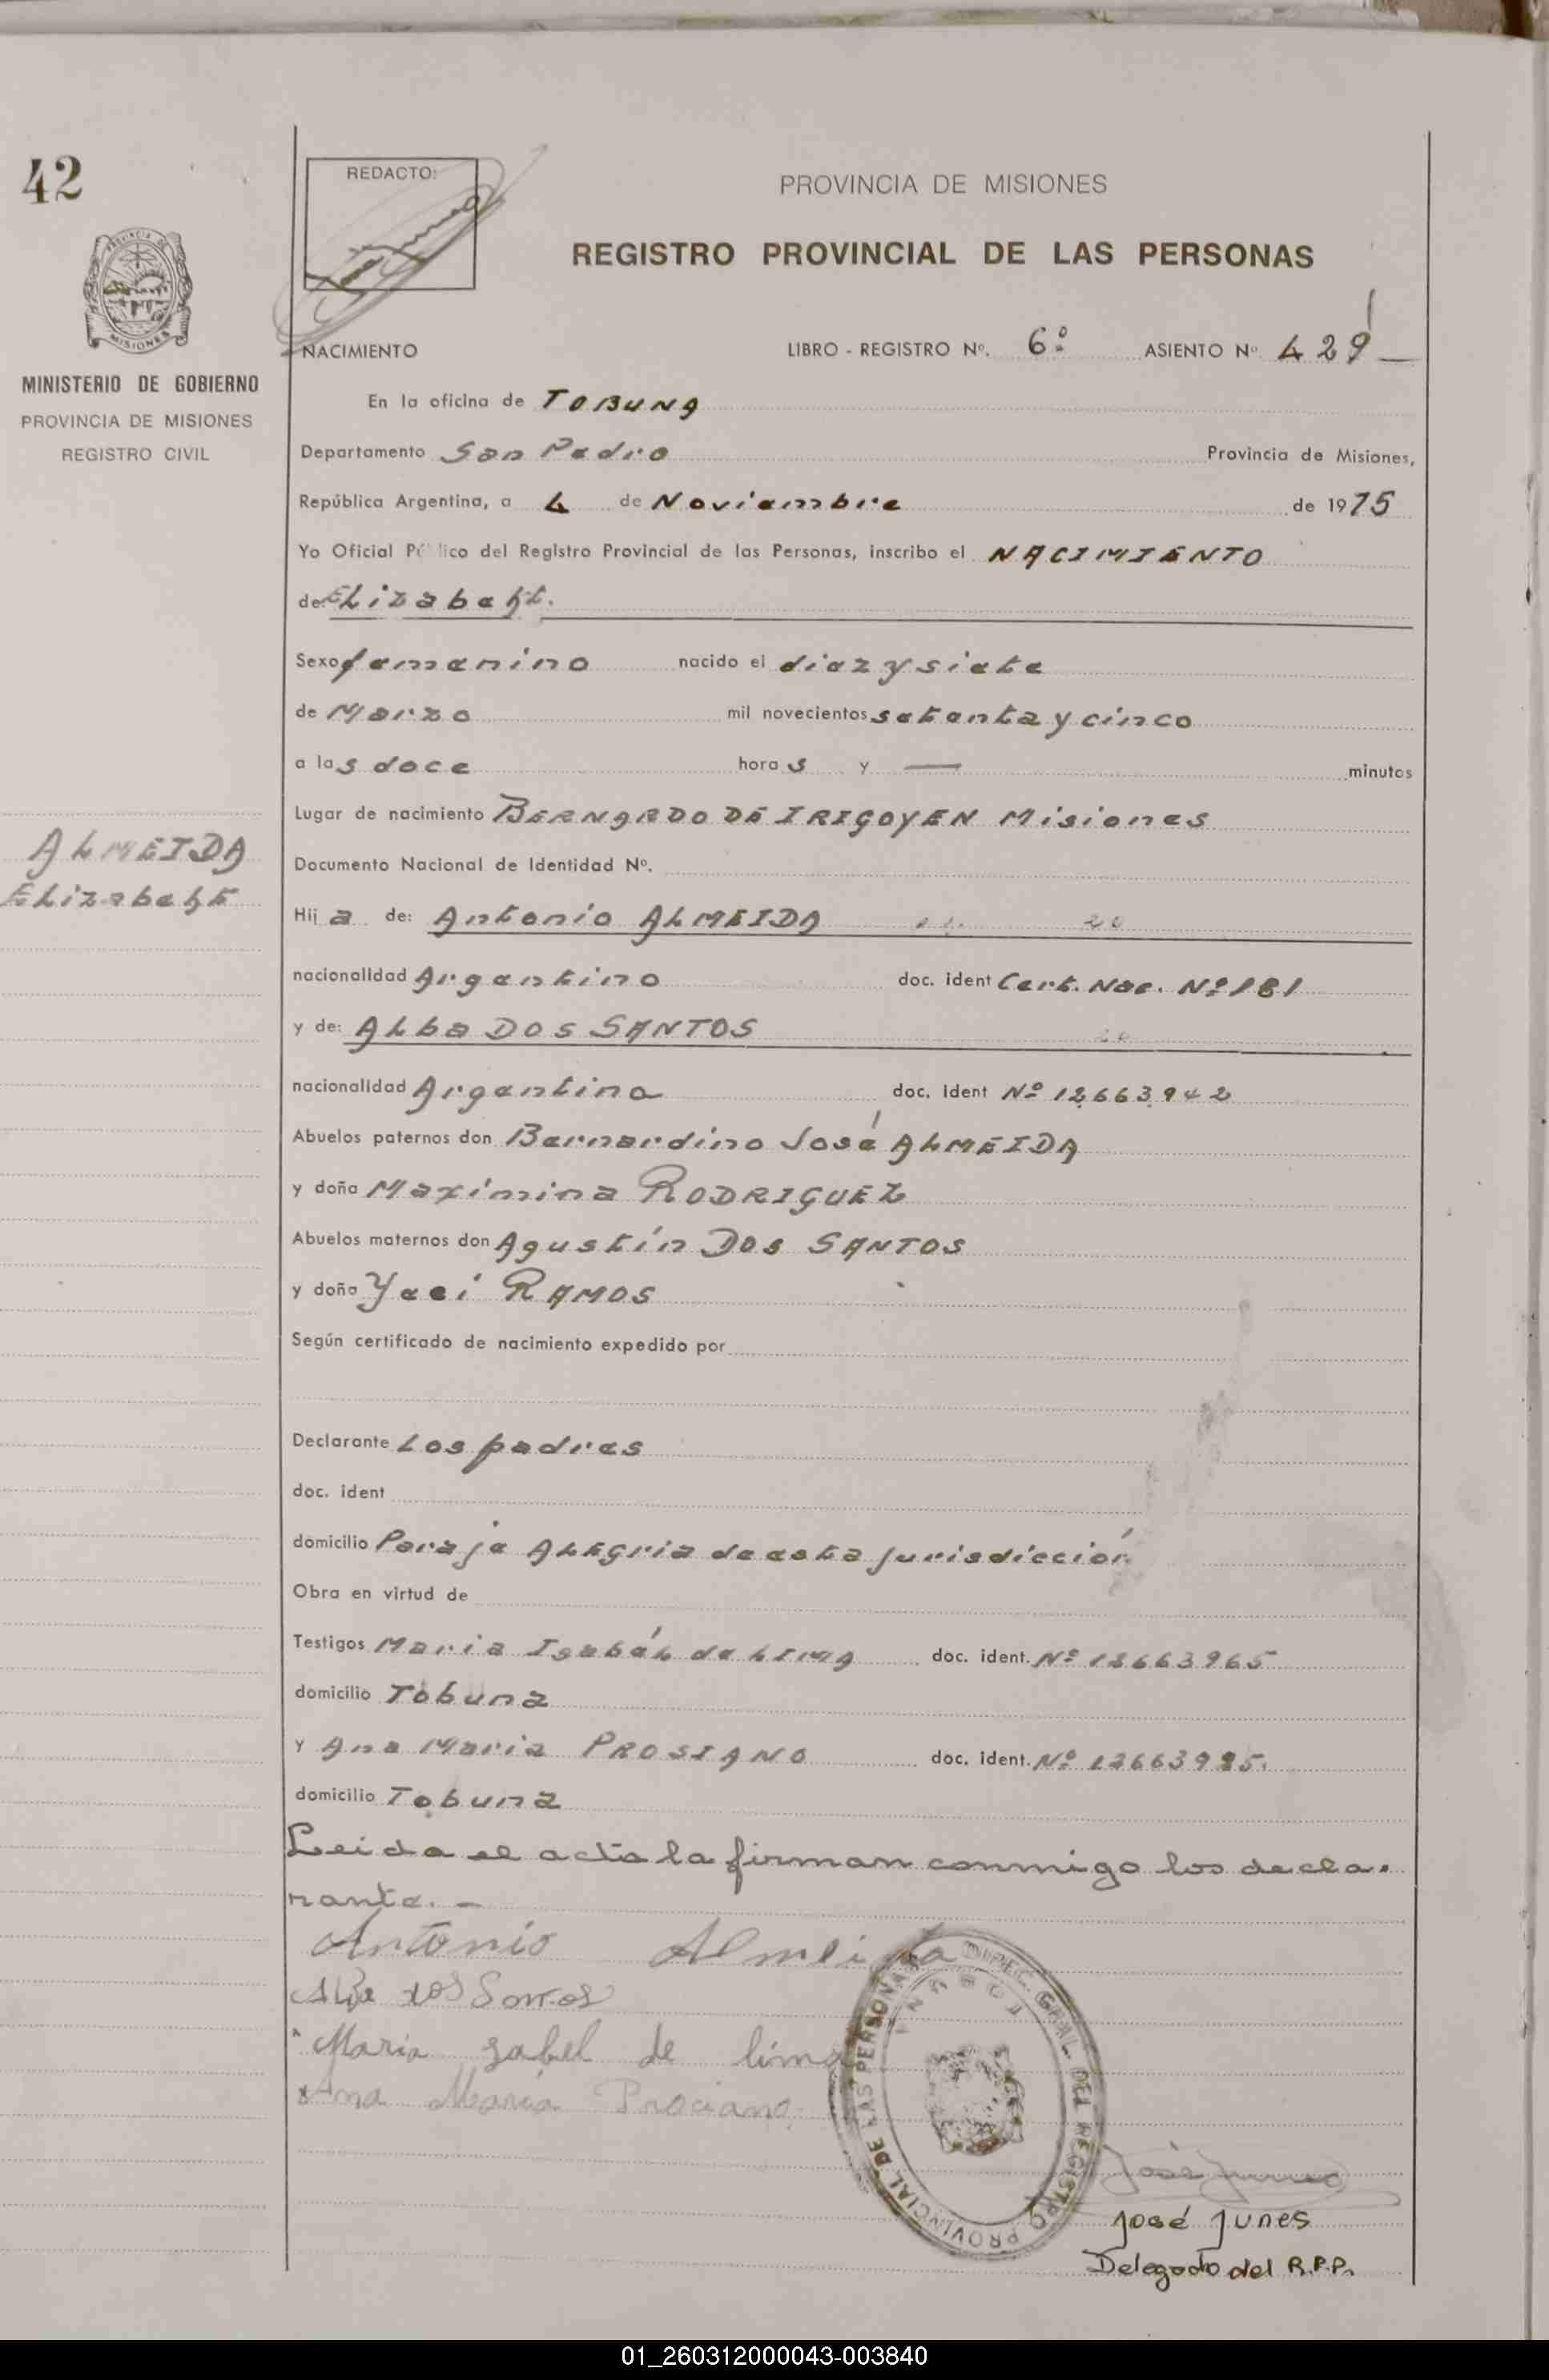 42
REDACTO:
PROVINCIA DE MISIONES
REGISTRO PROVINCIAL DE LAS PERSONAS
PROVINCIA DE
MISIONES
NACIMIENTO
LIBRO - REGISTRO Nº. 6º ASIENTO Nº 429
MINISTERIO DE GOBIERNO
PROVINCIA DE MISIONES
REGISTRO CIVIL
En la oficina de TOBUNA
Departamento San Pedro Provincia de Misiones,
República Argentina, a 4 de Noviembre de 1975
Yo Oficial Público del Registro Provincial de las Personas, inscribo el NACIMIENTO
de: Elizabeht.
Sexo femenino nacido el diez y siete
de Marzo mil novecientos setenta y cinco
a las doce horas y — minutos
Lugar de nacimiento BERNARDO DE IRIGOYEN Misiones
ALMEIDA
Elizabeht
Documento Nacional de Identidad Nº.
Hija de: Antonio ALMEIDA 20
nacionalidad Argentino doc. ident Cert. Nac. Nº 181
y de: Alba DOS SANTOS
nacionalidad Argentina doc. ident Nº 12.663.942
Abuelos paternos don Bernardino José ALMEIDA
y doña Maximina RODRIGUEZ
Abuelos maternos don Agustín DOS SANTOS
y doña Yaci RAMOS
Según certificado de nacimiento expedido por
Declarante Los padres
doc. ident
domicilio Paraje ALEgria de esta jurisdicción
Obra en virtud de
Testigos Maria Isabél de LIMA doc. ident. Nº 12663965
domicilio Tobuna
y Ana Maria PROSIANO doc. ident. Nº 12663925.
domicilio Tobuna
Leida el acta la firman conmigo los decla-
rante. —
Antonio Almeida
Alba dos Santos
Maria Isabel de lima
Ana María Prociano.
DIREC. GRAL. DEL REGISTRO PROVINCIAL DE LAS PERSONAS
TOBUNA
José Junes
José Junes
Delegado del R.P.P.
01_260312000043-003840